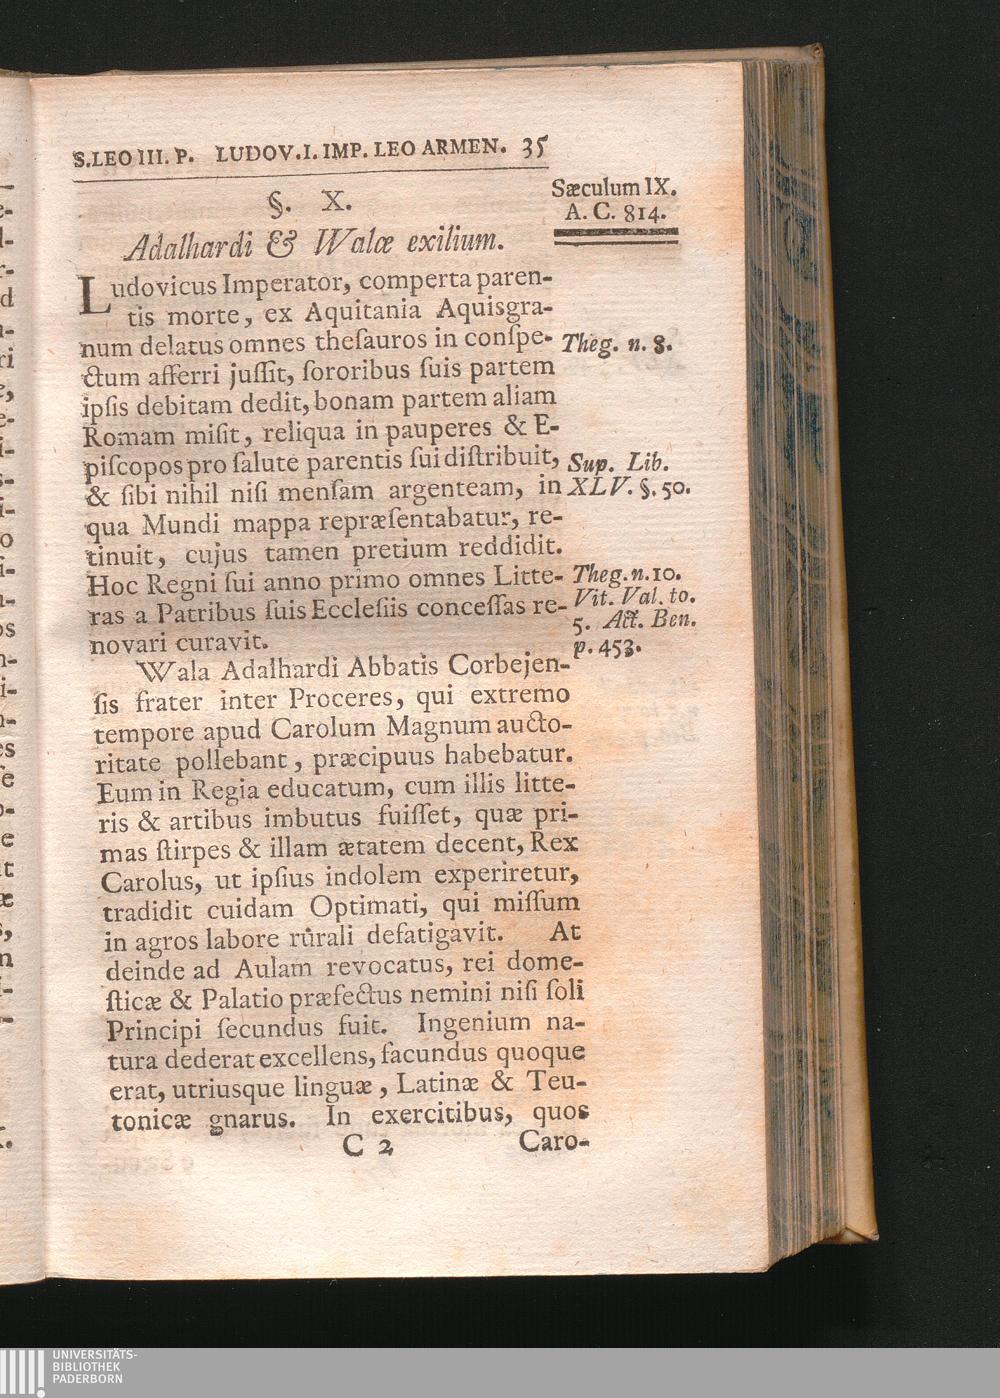 S.LEO III. P. LUDOV. I. IMP. LEO ARMEN. 35
Sæculum IX.
A. C. 814.
§. X.
Adalhardi & Walæ exilium.
Ludovicus Imperator, comperta paren-
tis morte, ex Aquitania Aquisgra-
num delatus omnes theſauros in conſpe-
ctum afferri juſſit, ſororibus ſuis partem
ipſis debitam dedit, bonam partem aliam
Romam miſit, reliqua in pauperes & E-
piſcopos pro ſalute parentis ſui diſtribuit,
& ſibi nihil niſi menſam argenteam, in
qua Mundi mappa repræſentabatur, re-
tinuit, cujus tamen pretium reddidit.
Hoc Regni ſui anno primo omnes Litte-
ras a Patribus ſuis Eccleſiis conceſſas re-
novari curavit.
Theg. n. 8.
Sup. Lib.
XLV. §. 50.
Theg. n. 10.
Vit. Val. to.
5. Act. Ben.
p. 453.
Wala Adalhardi Abbatis Corbejen-
ſis frater inter Proceres, qui extremo
tempore apud Carolum Magnum aucto-
ritate pollebant, præcipuus habebatur.
Eum in Regia educatum, cum illis litte-
ris & artibus imbutus fuiſſet, quæ pri-
mas ſtirpes & illam ætatem decent, Rex
Carolus, ut ipſius indolem experiretur,
tradidit cuidam Optimati, qui miſſum
in agros labore růrali defatigavit. At
deinde ad Aulam revocatus, rei dome-
ſticæ & Palatio præfectus nemini niſi ſoli
Principi ſecundus fuit. Ingenium na-
tura dederat excellens, facundus quoque
erat, utriusque linguæ, Latinæ & Teu-
tonicæ gnarus. In exercitibus, quos
C 2 Caro-
UNIVERSITÄTS-
BIBLIOTHEK
PADERBORN